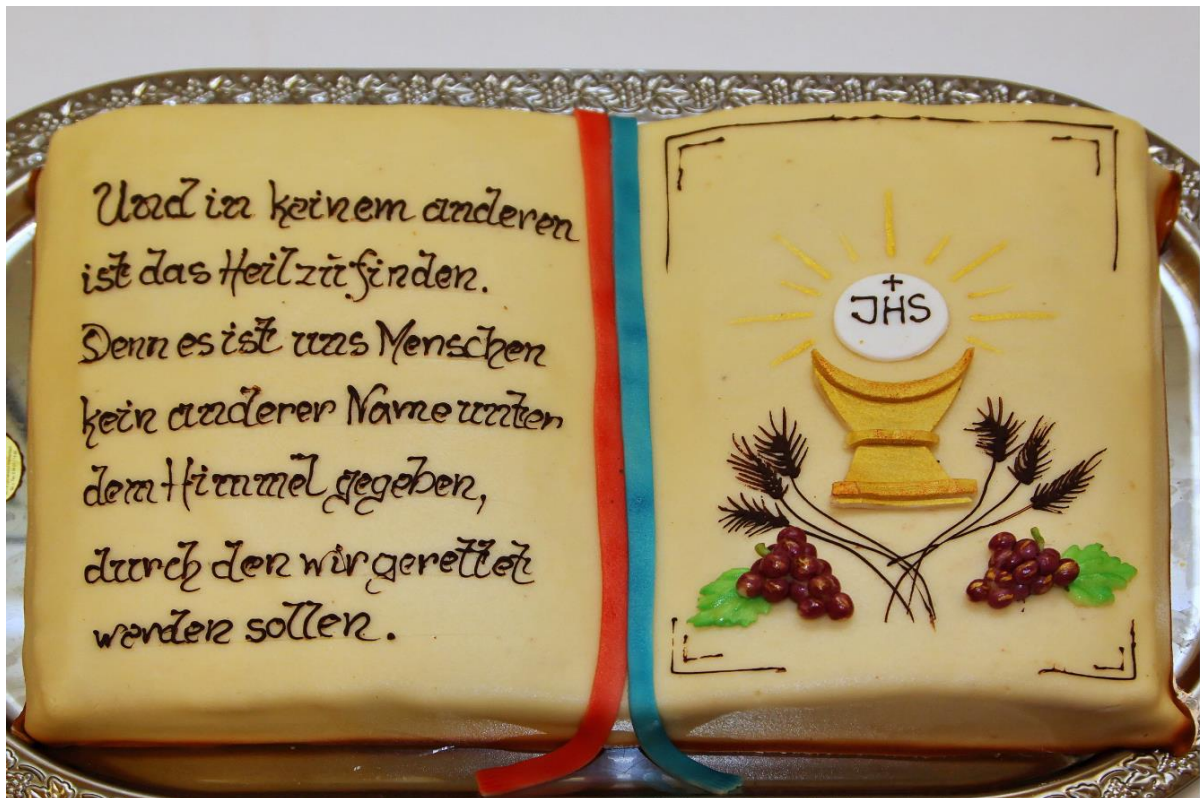 Und in keinem anderen
ist das Heil zu finden.
Denn es ist uns Menschen
kein anderer Name unter
dem Himmel gegeben,
durch den wir gerettet
werden sollen.
JHS